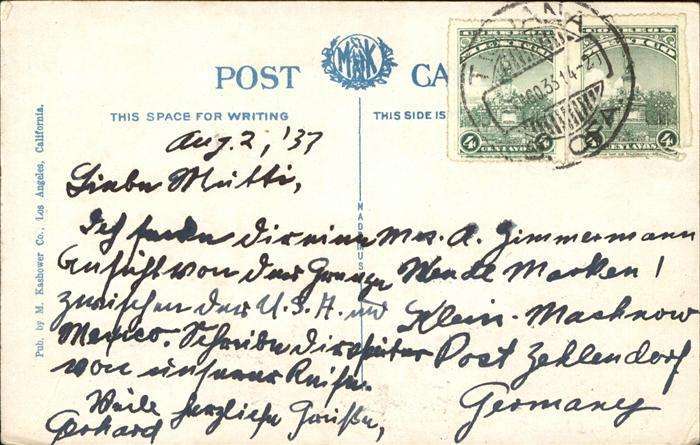 POST CA
MK
THIS SPACE FOR WRITING
THIS SIDE IS
Aug. 2, '33
Liebe Mutti,
Ich sende dir eine
Ansicht von der Grenze
zwischen der U.S.A. und
Mexico. Schreibe dir später
von unserer Reise.
Viele herzliche Grüße,
Gerhard
Mrs. A. Zimmermann
Wende Marken!
Klein-Machnow
Post Zehlendorf
Germany
Pub. by M. Kashower Co., Los Angeles, California.
MEXICO
4 CENTAVOS 4
CENTAVOS 4